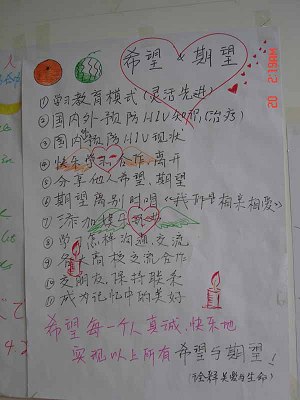 希望 & 期望
① 学习教育模式(灵活先进)
② 国内外预防HIV知识(治疗)
③ 国内预防HIV现状
④ 快乐学习、合作、离开
⑤ 分享他人希望、期望
⑥ 期望离别时唱《我们是相亲相爱》
⑦ 添加娱乐
⑧ 学习怎样沟通、交流
⑨ 各大高校交流合作
⑩ 交朋友、保持联系
⑪ 成为记忆中的美好
希望每一个人真诚、快乐地
实现以上所有希望与期望!
(诠释美爱与生命)
20 2:19AM